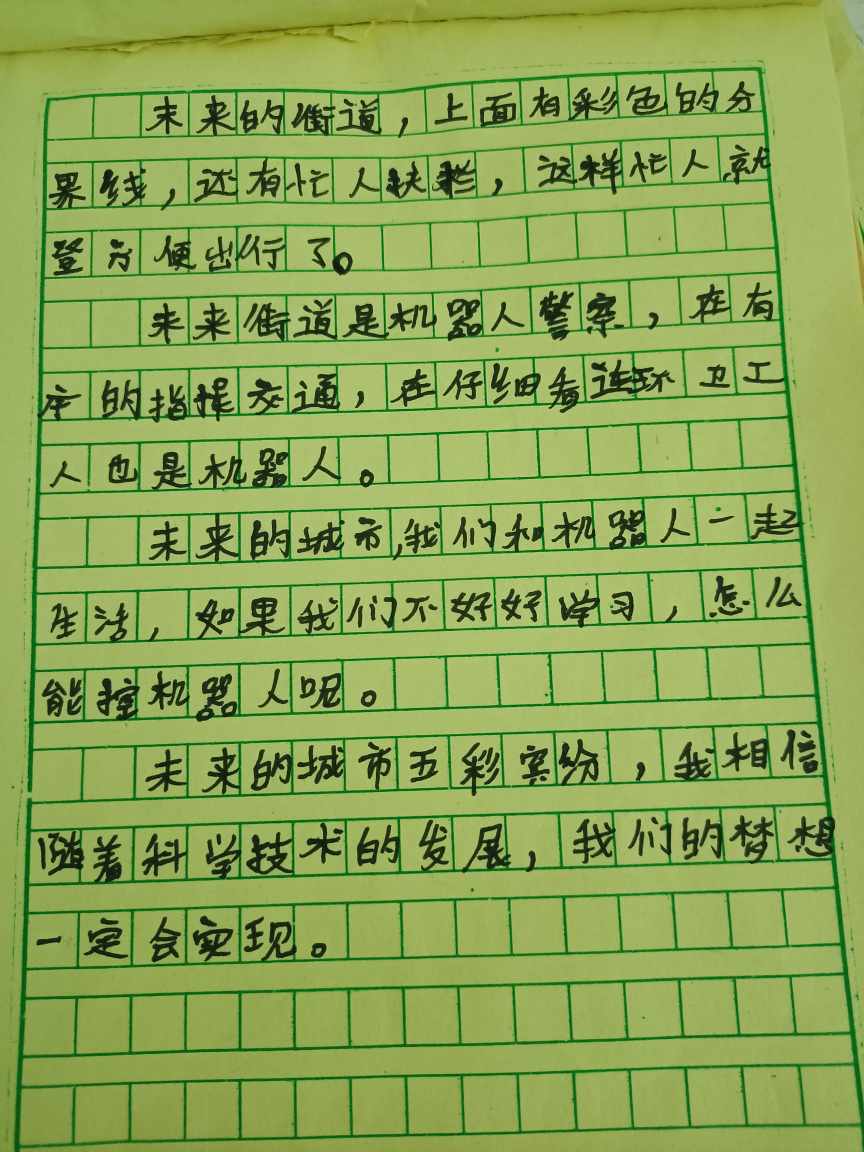 未来的街道，上面有彩色的分
界线，还有忙人快栏，这样忙人就
登方便出行了。
未来街道是机器人警察，在有
序的指挥交通，在仔细看连环卫工
人也是机器人。
未来的城市,我们和机器人一起
生活，如果我们不好好学习，怎么
能控机器人呢。
未来的城市五彩宾纷，我相信
随着科学技术的发展，我们的梦想
一定会实现。